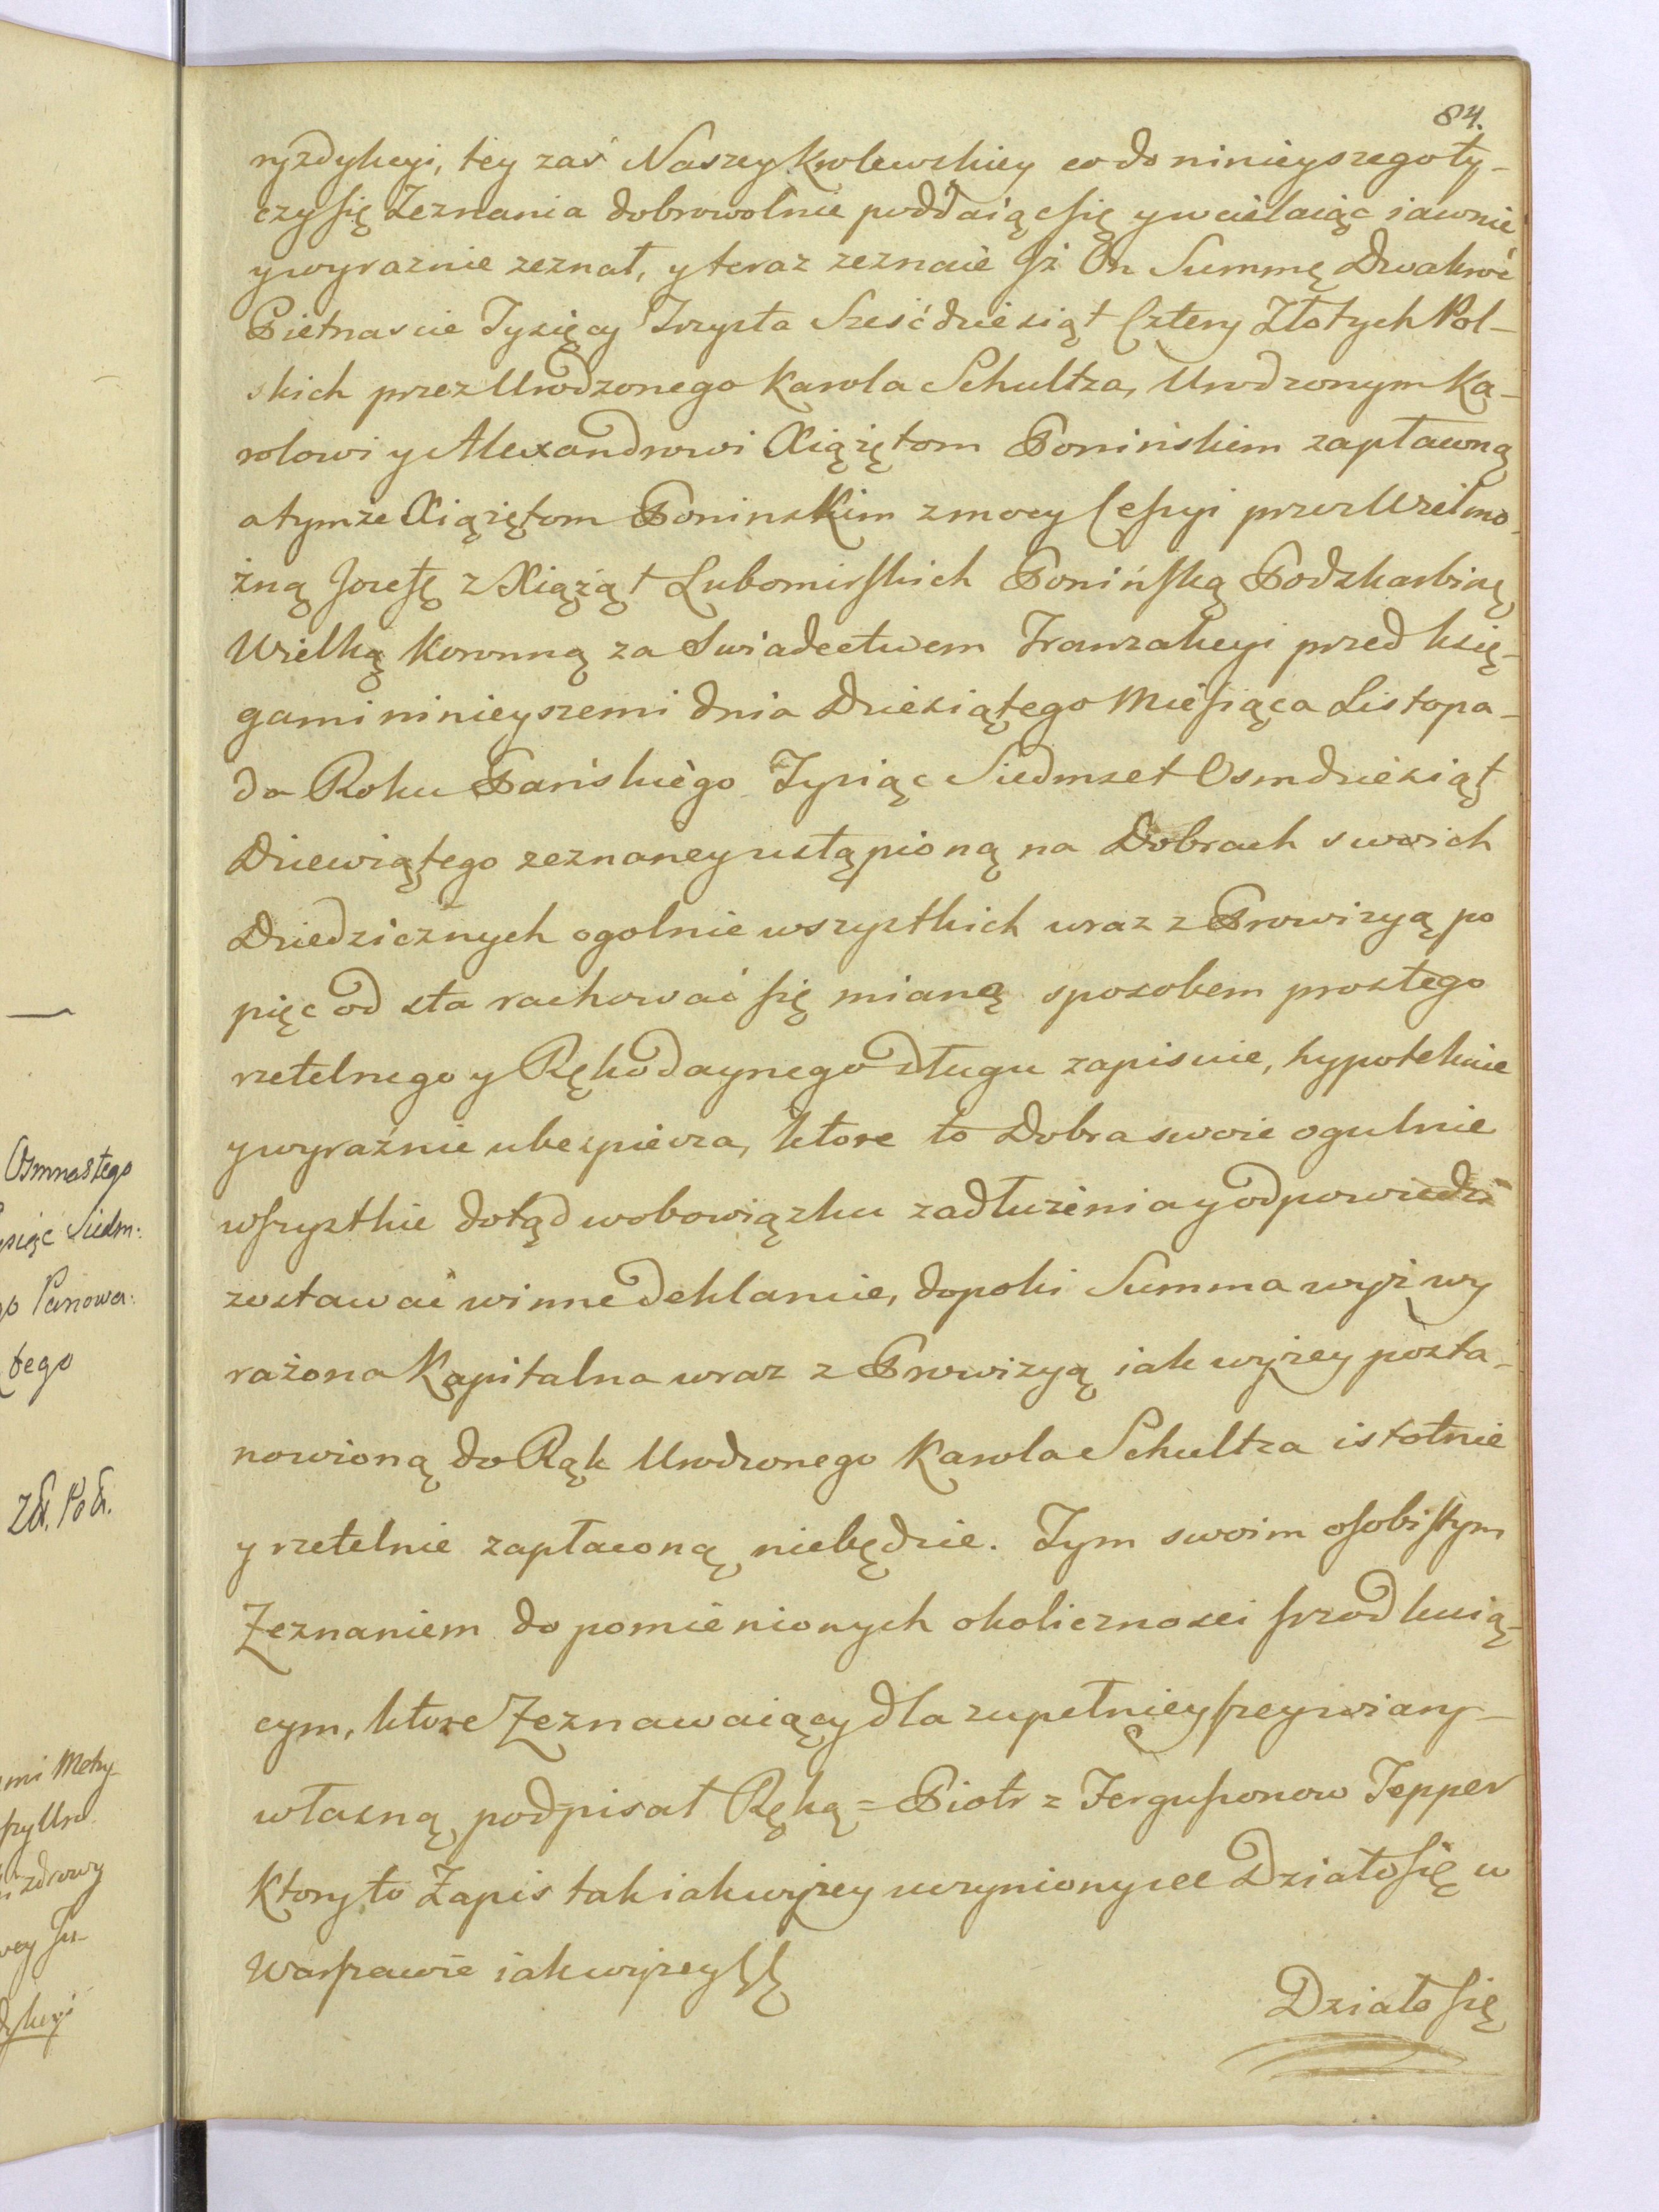 84.
ryzdykcyi, tey zaś Naszey Krolewskiey co do ninieyszego ty-
czy się Zeznania dobrowolnie poddaiąc się y wcielaiąc iawnie
y wyraznie zeznał, y teraz zeznaie Iż On Summę Dwakroć
Pietnascie Tysięcy Trzysta Sześćdziesiąt Cztery Złotych Pol-
skich przez Urodzonego Karola Schultza, Urodzonym Ka-
rolowi y Alexandrowi Xiążętom Ponińskim zapłaconą
a tymże Xiążętom Poninskim z mocy Cessyi przez Wielmo-
żną Jozefę z Xiążąt Lubomirskich Ponińską Podskarbinę
Wielką Koronną za Swiadectwem Tranzakcyi przed księ-
gami ninieyszemi dnia Dziesiątego Miesiąca Listopa-
da Roku Pańskiego Tysiąc Siedmset Osmdziesiąt
Dziewiątego zeznaney ustąpioną na Dobrach swoich
Dziedzicznych ogolnie wszystkich wraz z Prowizyą po
pięc od sta rachować się mianą sposobem prostego
rzetelnego y Rękodaynego długu zapisuie, hypotekuie
y wyraźnie ubezpiecza, ktore to Dobra swoie ogulnie
wszystkie dotąd w obowiązku zadłużenia y odpowiedzi
zostawać winne deklaruie, dopoki Summa wyż wy
rażona Kapitalna wraz z Prowizyą iak wyżey posta-
nowioną do Rąk Urodzonego Karola Schultza istotnie
y rzetelnie zapłaconą niebędzie. Tym swoim osobistym
Zeznaniem do pomienionych okoliczności przod kuią-
cym, ktore Zeznawaiący dla zupełniey szey wiary
własną podpisał Ręką = Piotr z Fergusonow Tepper
Ktory to Zapis tak iak wyżey uczyniony iest Działo się w
Warszawie iak wyżey
Działo się
Osmnastego
Siedm:
Panowa:
tego
Zł. Pol.
mi Metry-
zdrowy